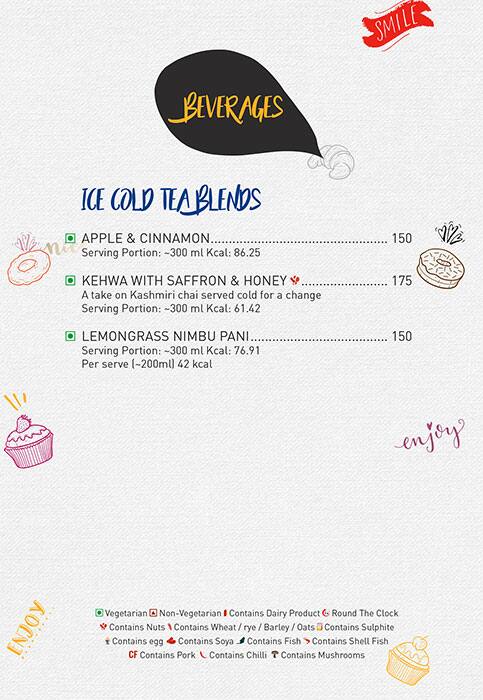 SMILE
BEVERAGES
ICE COLD TEA BLENDS
APPLE & CINNAMON................................................ 150
Serving Portion: ~300 ml Kcal: 86.25
KEHWA WITH SAFFRON & HONEY ....................... 175
A take on Kashmiri chai served cold for a change
Serving Portion: ~300 ml Kcal: 61.42
LEMONGRASS NIMBU PANI..................................... 150
Serving Portion: ~300 ml Kcal: 76.91
Per serve (~200ml) 42 kcal
enjoy
ENJOY
Vegetarian Non-Vegetarian Contains Dairy Product Round The Clock
Contains Nuts Contains Wheat / rye / Barley / Oats Contains Sulphite
Contains egg Contains Soya Contains Fish Contains Shell Fish
CF Contains Pork Contains Chilli Contains Mushrooms